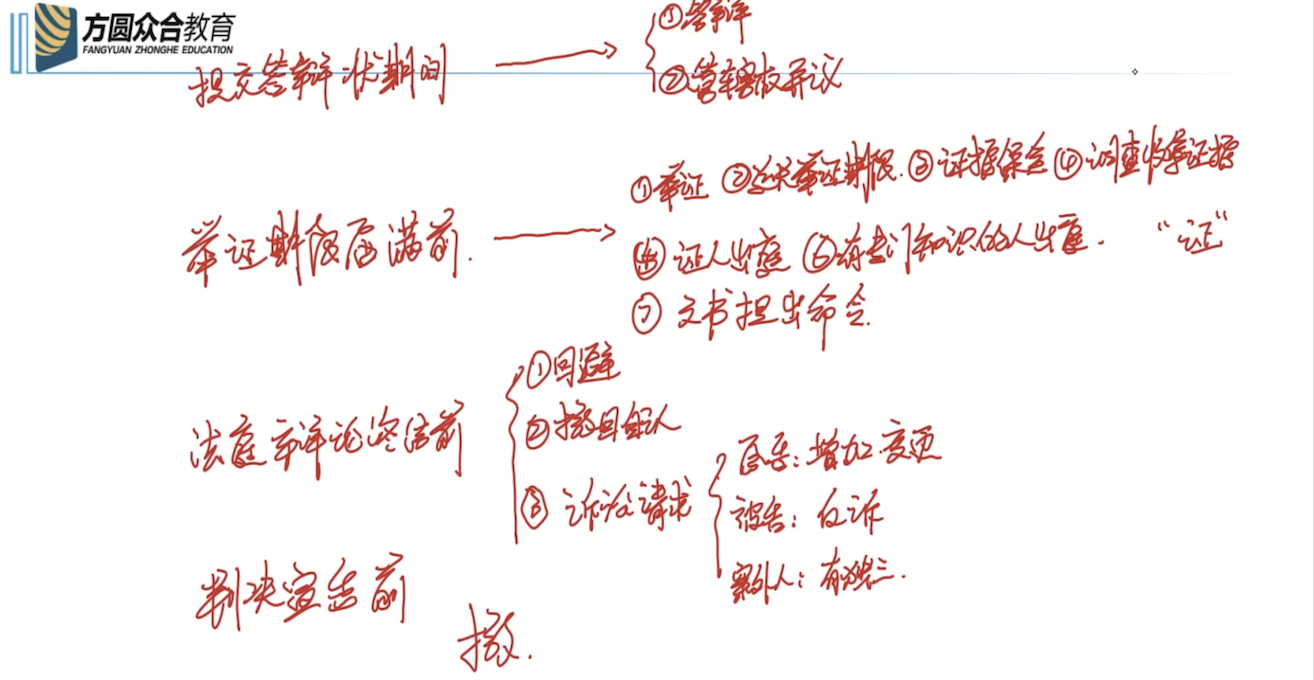 方圆众合教育
FANGYUAN ZHONGHE EDUCATION
提交答辩状期间
①答辩
②管辖权异议
举证期限届满前.
①举证 ②延长举证期限. ③证据保全 ④调查收集证据
⑤证人出庭 ⑥有专门知识的人出庭. “证”
⑦文书提出命令.
法庭辩论终结前
①回避
②撤回自认
③诉讼请求
原告:增加.变更
被告:反诉
案外人:有独三.
判决宣告前
撤.